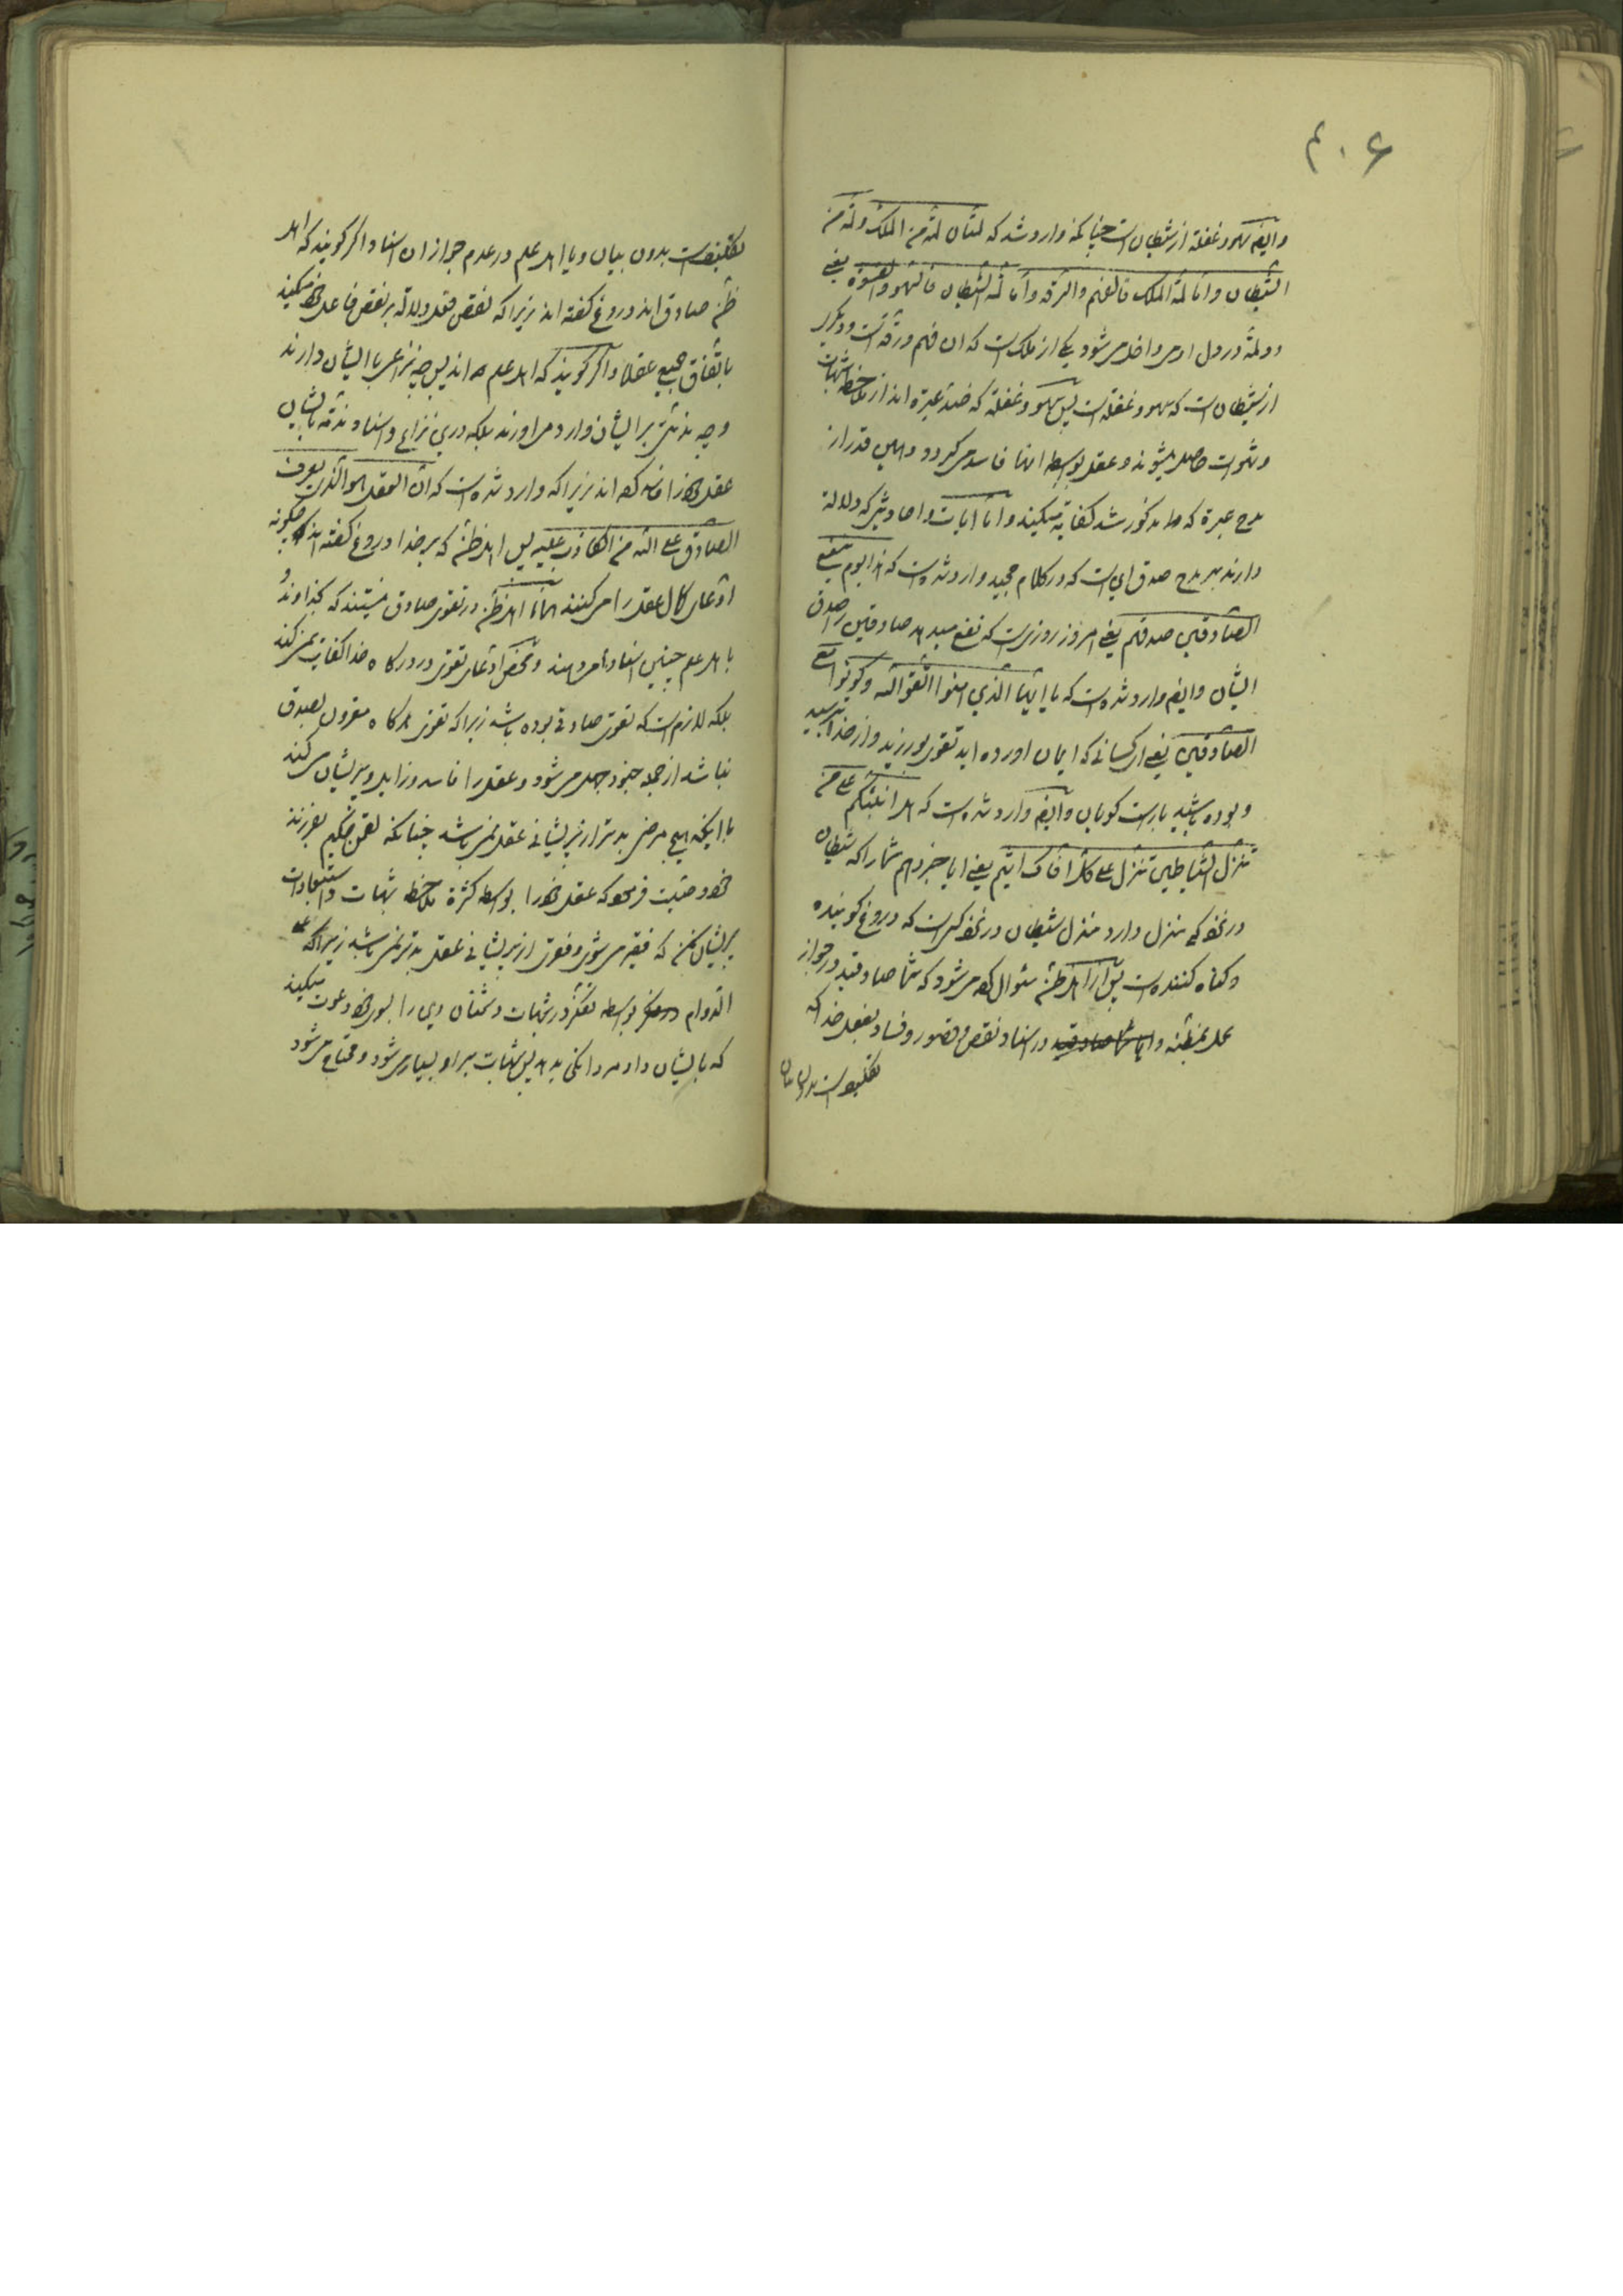 ۴۰۶
وایضا سهو و غفلة از شیطان است چنانکه وارد شد که لمتان لمة من الملک و لمة من
الشیطان و اما لمة الملک فالفهم والرقه و اما لمة الشیطان فالسهو والقسوة یعنی
دو لمة در دل ادمی داخل می شود یکی از ملک است که ان فهم و رقة است و دیگری
از شیطان است که سهو و غفلة است پس سهو و غفلة که ضد عبرة اند از ملاحظه شبهات
و شهوات حاصل میشوند و عقل بواسطه انها فاسد می کردد و همین قدر از
مدح عبرة که مذکور شد کفایة میکند و اما ایات و احادیثی که دلالة
دارند بر مدح صدق ای است که در کلام مجید وارد شده است که هذا یوم ینفع
الصادقین صدقهم یعنی امروز روزیست که نفع میدهد صادقین را صدق
ایشان وایضا وارد شده است که یا ایها الذین امنوا اتقوا الله وکونوا مع
الصادقین یعنی ای کسانی که ایمان اورده اید تقوی بورزید و از خدا بترسید
و بوده باشید با راست کویان وایضا وارد شده است که هل انبئکم علی من
تنزل الشیاطین تنزل علی کل افاک اثیم یعنی ایا خبر دهم شما را که شیطان
در نزد که منزل دارد منزل شیطان در نزد کسی است که دروغ کوینده
و کناه کننده است پس از اهل ظن سئوال می شود که شما صادقید در جواز
عمل بمظنه و یا شما صادقید در اسناد نقص و قصور و فساد بفعل خدا که
تکلیف است بدون بیان
تکلیف است بدون بیان و یا اهل علم در عدم جواز ان اسناد اکر کویند که اهل
ظن صادق اند دروغ کفته اند زیرا که نقص فعل دلالة بر نقص فاعل میکند
باتفاق جمیع عقلا و اکر کویند که اهل علم اند پس چه نزاعی با ایشان دارند
و چه مذمتی بر ایشان وارد می اورند بلکه درین نزاع و اسناد مذمة بایشان
عقل را فاسد کرده اند زیرا که وارد شده است که ان العقل هو الذی یعرف
الصادق علی الله من الکاذب علیه پس اهل ظن که بر خدا دروغ کفته اند چکونه
ادعای کمال عقل را می کنند اهل ظن در تقوی صادق نیستند که بخداوند و
با اهل علم چنین اسناد می دهند و محض ادعای تقوی در درکاه خدا کفایة نمی کند
بلکه لازم است که تقوی صادقی بوده باشد زیرا که تقوی هرکاه مقرون بصدق
نباشد از جمله جنود جهل می شود و عقل را فاسد و زایل و پریشان می کند
با اینکه هیچ مرضی بدتر از پریشانی عقل نمی باشد چنانکه لقمن حکیم بفرزند
خود وصیت فرمود که عقل خود را بواسطه کثرة ملاحظه شبهات و استبعادات
پریشان مکن که فقیر می شوی و فقری از پریشانی عقل بدتر نمی باشد زیرا که علی
الدوام بواسطه تفکر در شبهات دشمنان وی را بسوی خود دعوت میکنند
که بایشان داد مردانکی بدهد پس شبهات بر او بسیار می شود و محتاج می شود